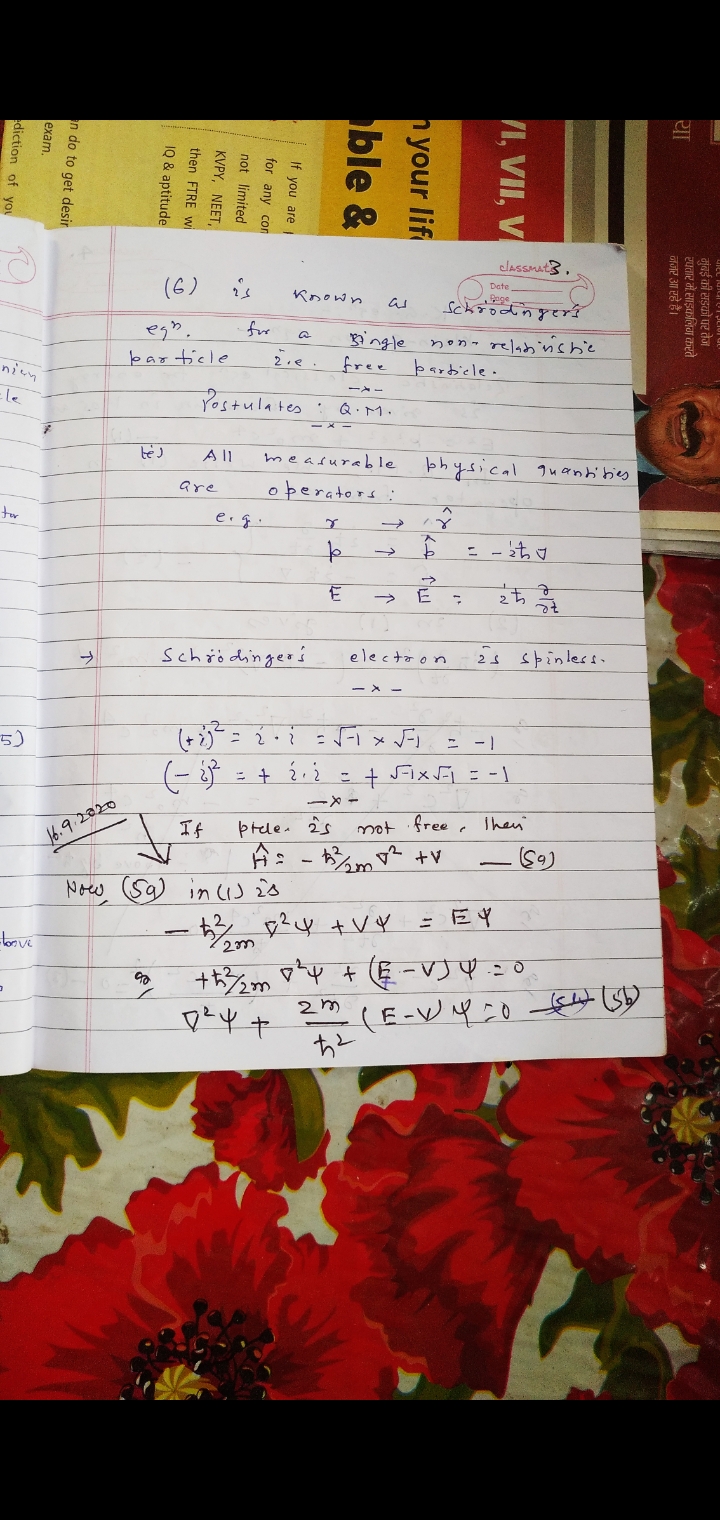 VI, VII, V
n your lif
able &
If you are
for any con
not limited
KVPY, NEET,
then FTRE w
IQ & aptitude
n do to get desir
exam.
ediction of you
classmate
3.
Date
Page
(6) is known as Schrödinger's
eqⁿ. for a single non-relativistic
particle i.e. free particle.
—x—
Postulates : Q.M.
—x—
All measurable physical quantities
are operators :
e.g. r → r̂
p → p̂ = -iħ∇
E → E⃗ = iħ ∂/∂t
→ Schrödinger's electron is spinless.
—x—
(+i)² = i·i = √-1 x √-1 = -1
(-i)² = + i.i = + √-1x√-1 = -1
—x—
16.9.2020
If ptcle. is not free, then
Ĥ = - ħ²/2m ∇² + V — (5a)
Now (5a) in (1) is
- ħ²/2m ∇²ψ + Vψ = Eψ
or +ħ²/2m ∇²ψ + (E-V)ψ = 0
∇²ψ + 2m/ħ² (E-V)ψ = 0 — (5b)
5)